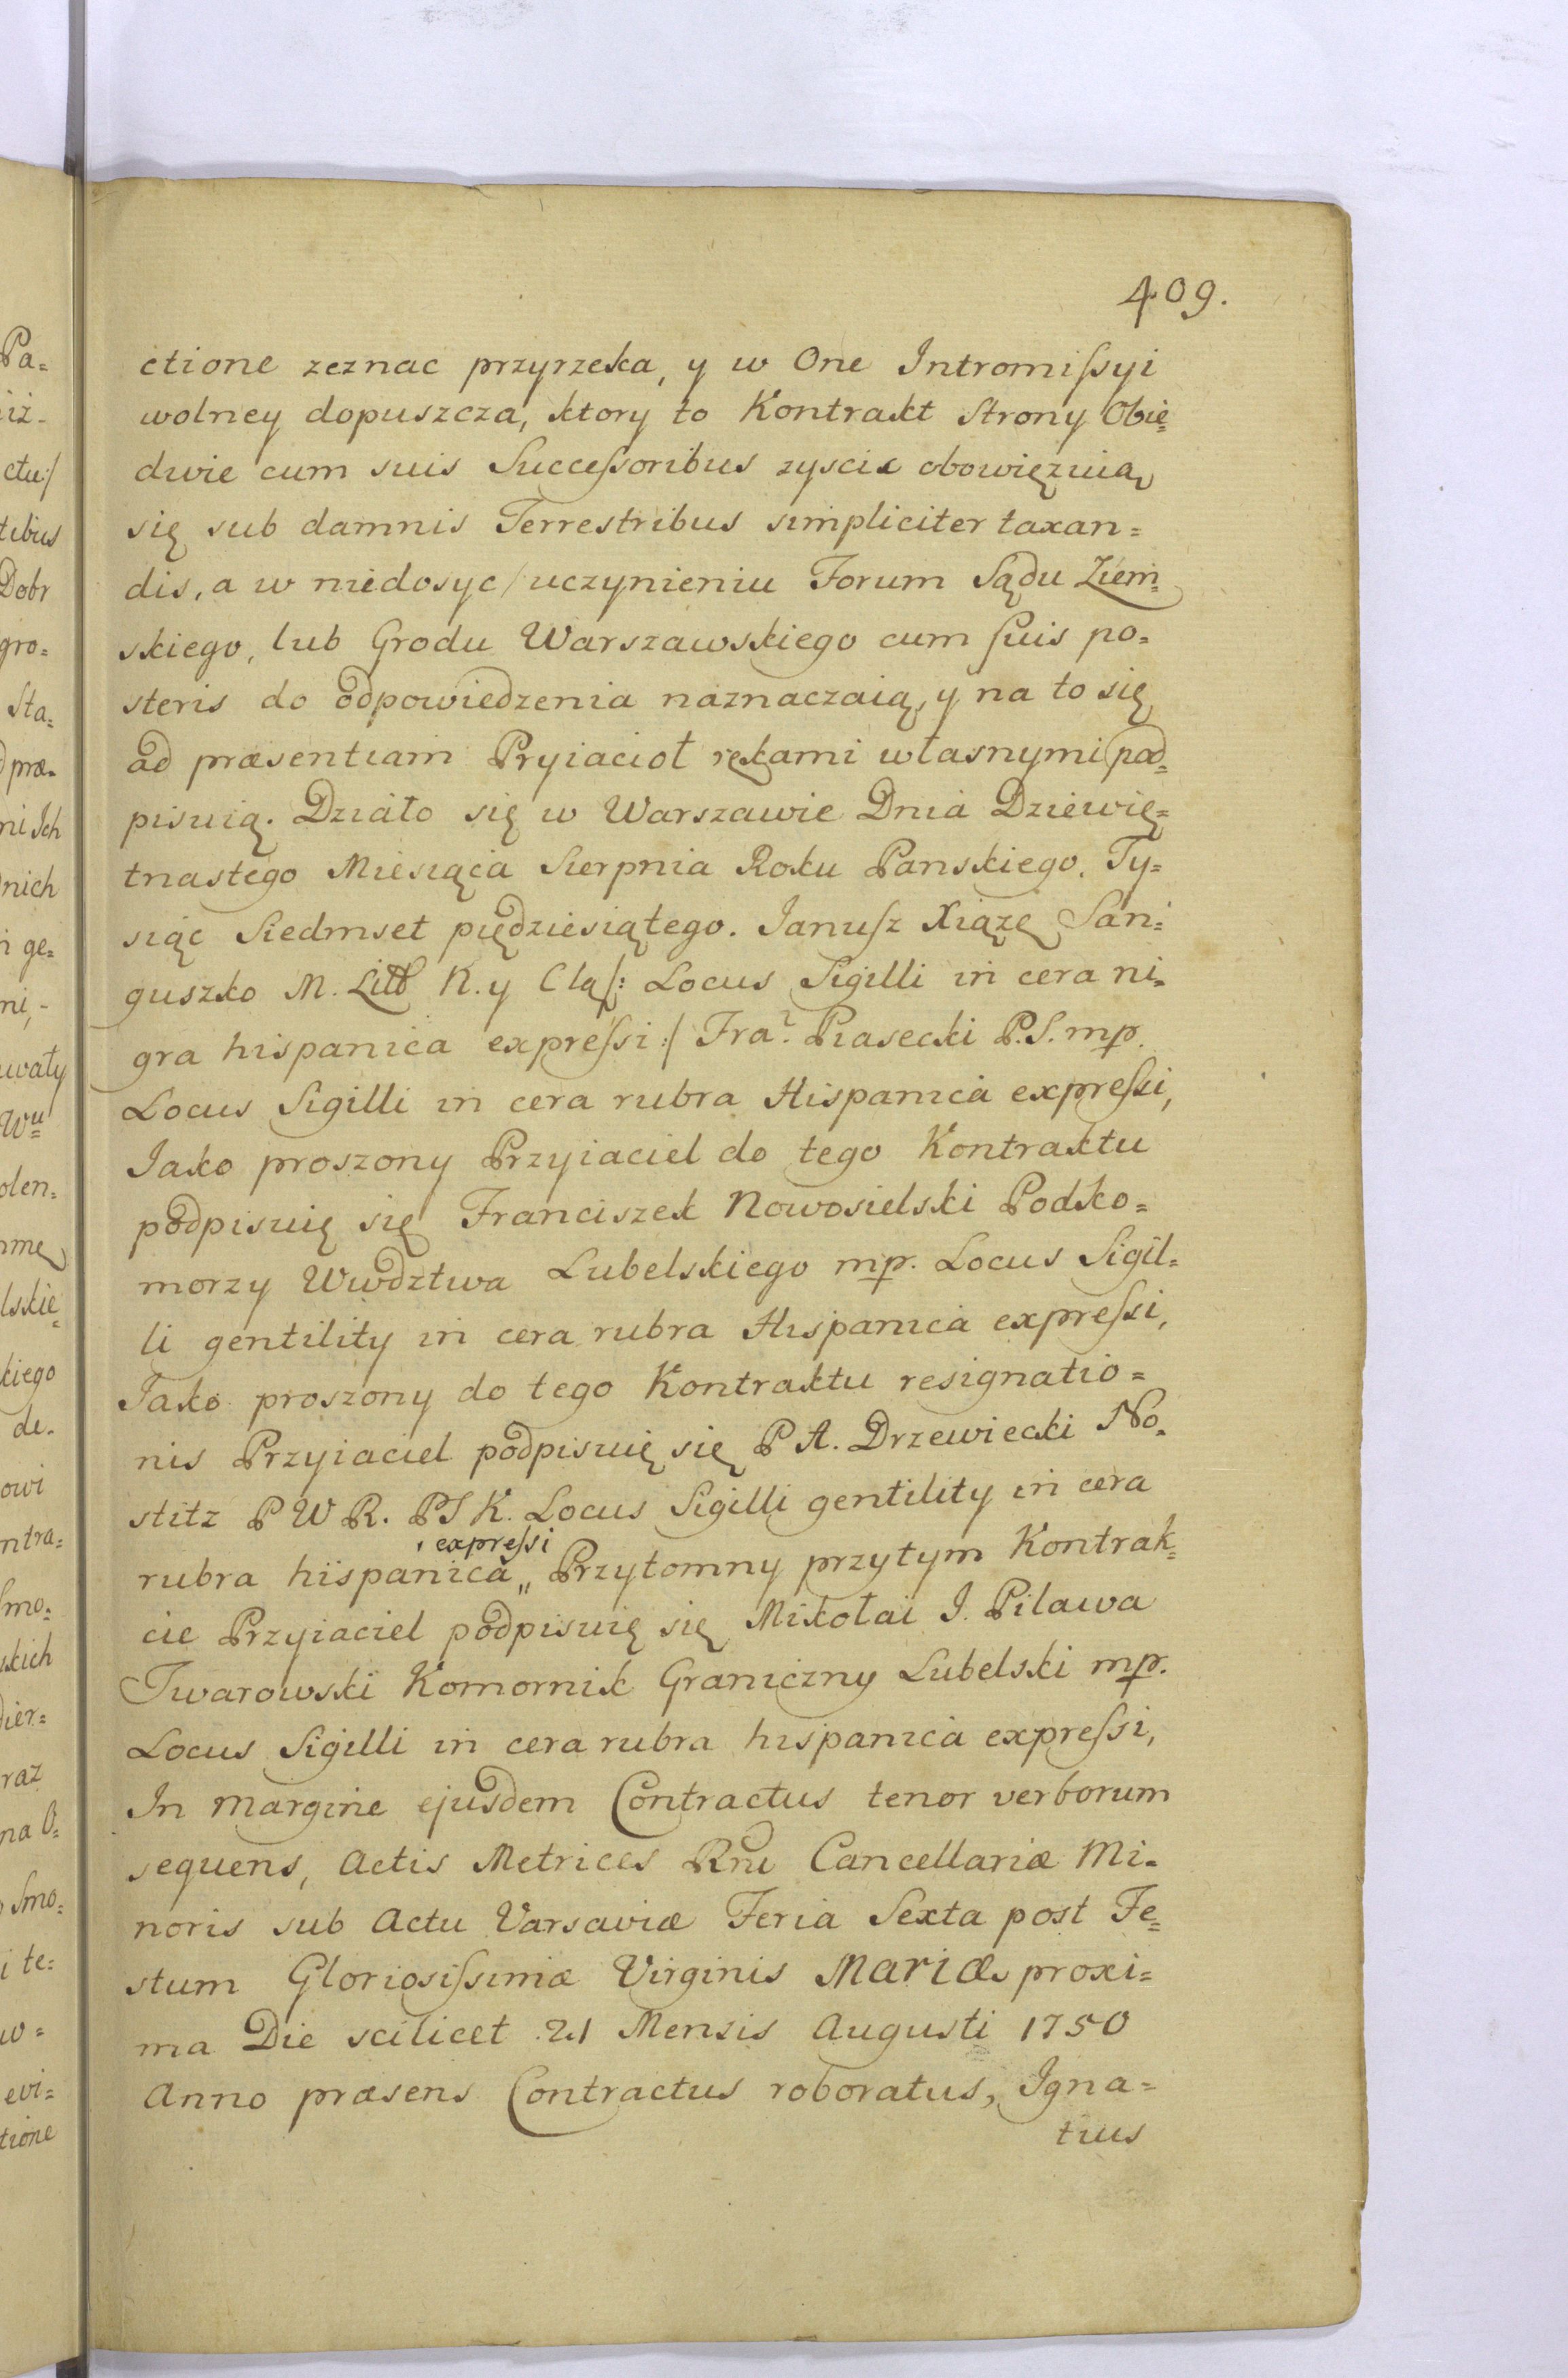 409.
ctione zeznac przyrzeka, y w One Intromiſsyi
wolney dopuszcza, ktory to Kontrakt Strony Obie=
dwie cum suis Succeſsoribus zyscic obowięzuią
się sub damnis Terrestribus simpliciter taxan=
dis, a w niedosyc/uczynieniu Forum Sądu Ziem=
skiego, lub Grodu Warszawskiego cum ſuis po=
steris do odpowiedzenia naznaczaią, y na to się
ad præsentiam Pryiacioł rękami własnymi pod=
pisuią. Działo się w Warszawie Dnia Dziewię=
tnastego Miesiąca Sierpnia Roku Panskiego. Ty=
siąc Siedmset piędziesiątego. Januſz Xiąże San=
guszko M. Litt K. y Claſ: Locus Sigilli in cera ni=
gra hispanica expreſsi:/ Fra? Piasecki P.S. mp.
Locus Sigilli in cera rubra Hispanica expreſsi,
Jako proszony Przyiaciel do tego Kontraktu
podpisuię się Franciszek Nowosielski Podko=
morzy Wwdztwa Lubelskiego mp. Locus Sigil=
li gentility in cera rubra Hispanica expreſsi,
Jako proszony do tego Kontraktu resignatio=
nis Przyiaciel podpisuię się P A. Drzewiecki No=
stitz P W R. PS K. Locus Sigilli gentility in cera
expreſsi
rubra hispanica,, Przytomny przytym Kontrak=
cie Przyiaciel podpisuię się Mikołai J. Pilawa
Twarowski Komornik Graniczny Lubelski mp.
Locus Sigilli in cera rubra hispanica expreſsi,
In margine ejusdem Contractus tenor verborum
sequens, Actis Metrices Rni Cancellariæ Mi=
noris sub Actu Varsaviæ Feria Sexta post Fe=
stum Gloriosiſsimæ Virginis Mariæ proxi=
ma Die scilicet 21 Mensis Augusti 1750
Anno præsens Contractus roboratus, Igna=
tius